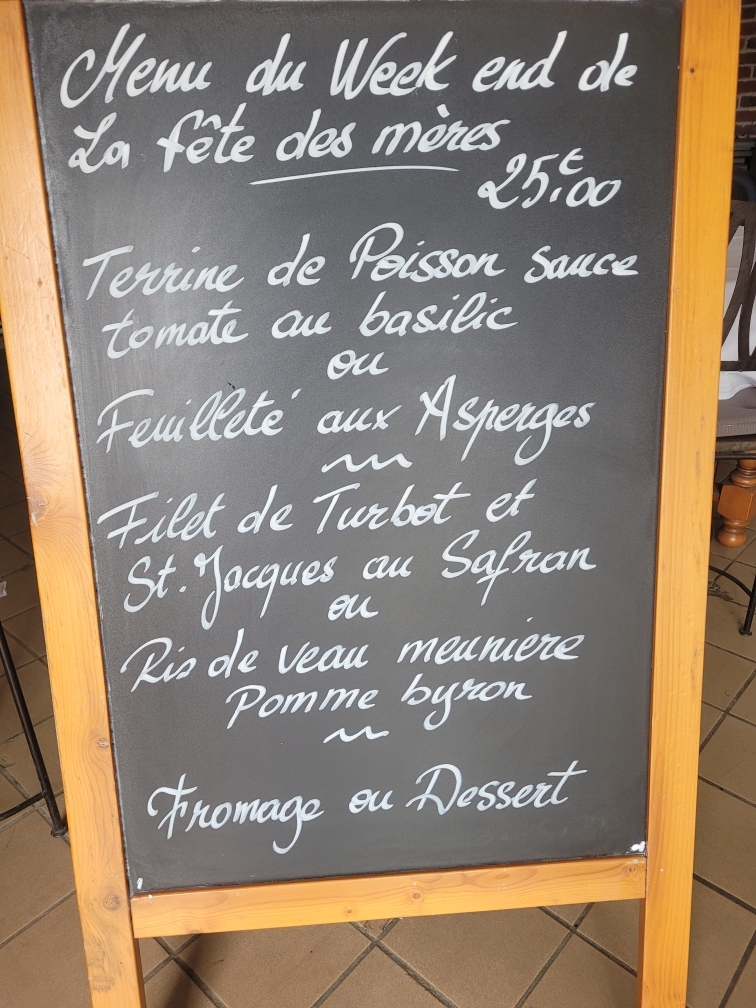 Menu du Week end de
La fête des mères
25,€00
Terrine de Poisson sauce
tomate au basilic
ou
Feuilleté aux Asperges
Filet de Turbot et
St. Jacques au Safran
ou
Ris de veau meunière
Pomme byron
Fromage ou Dessert